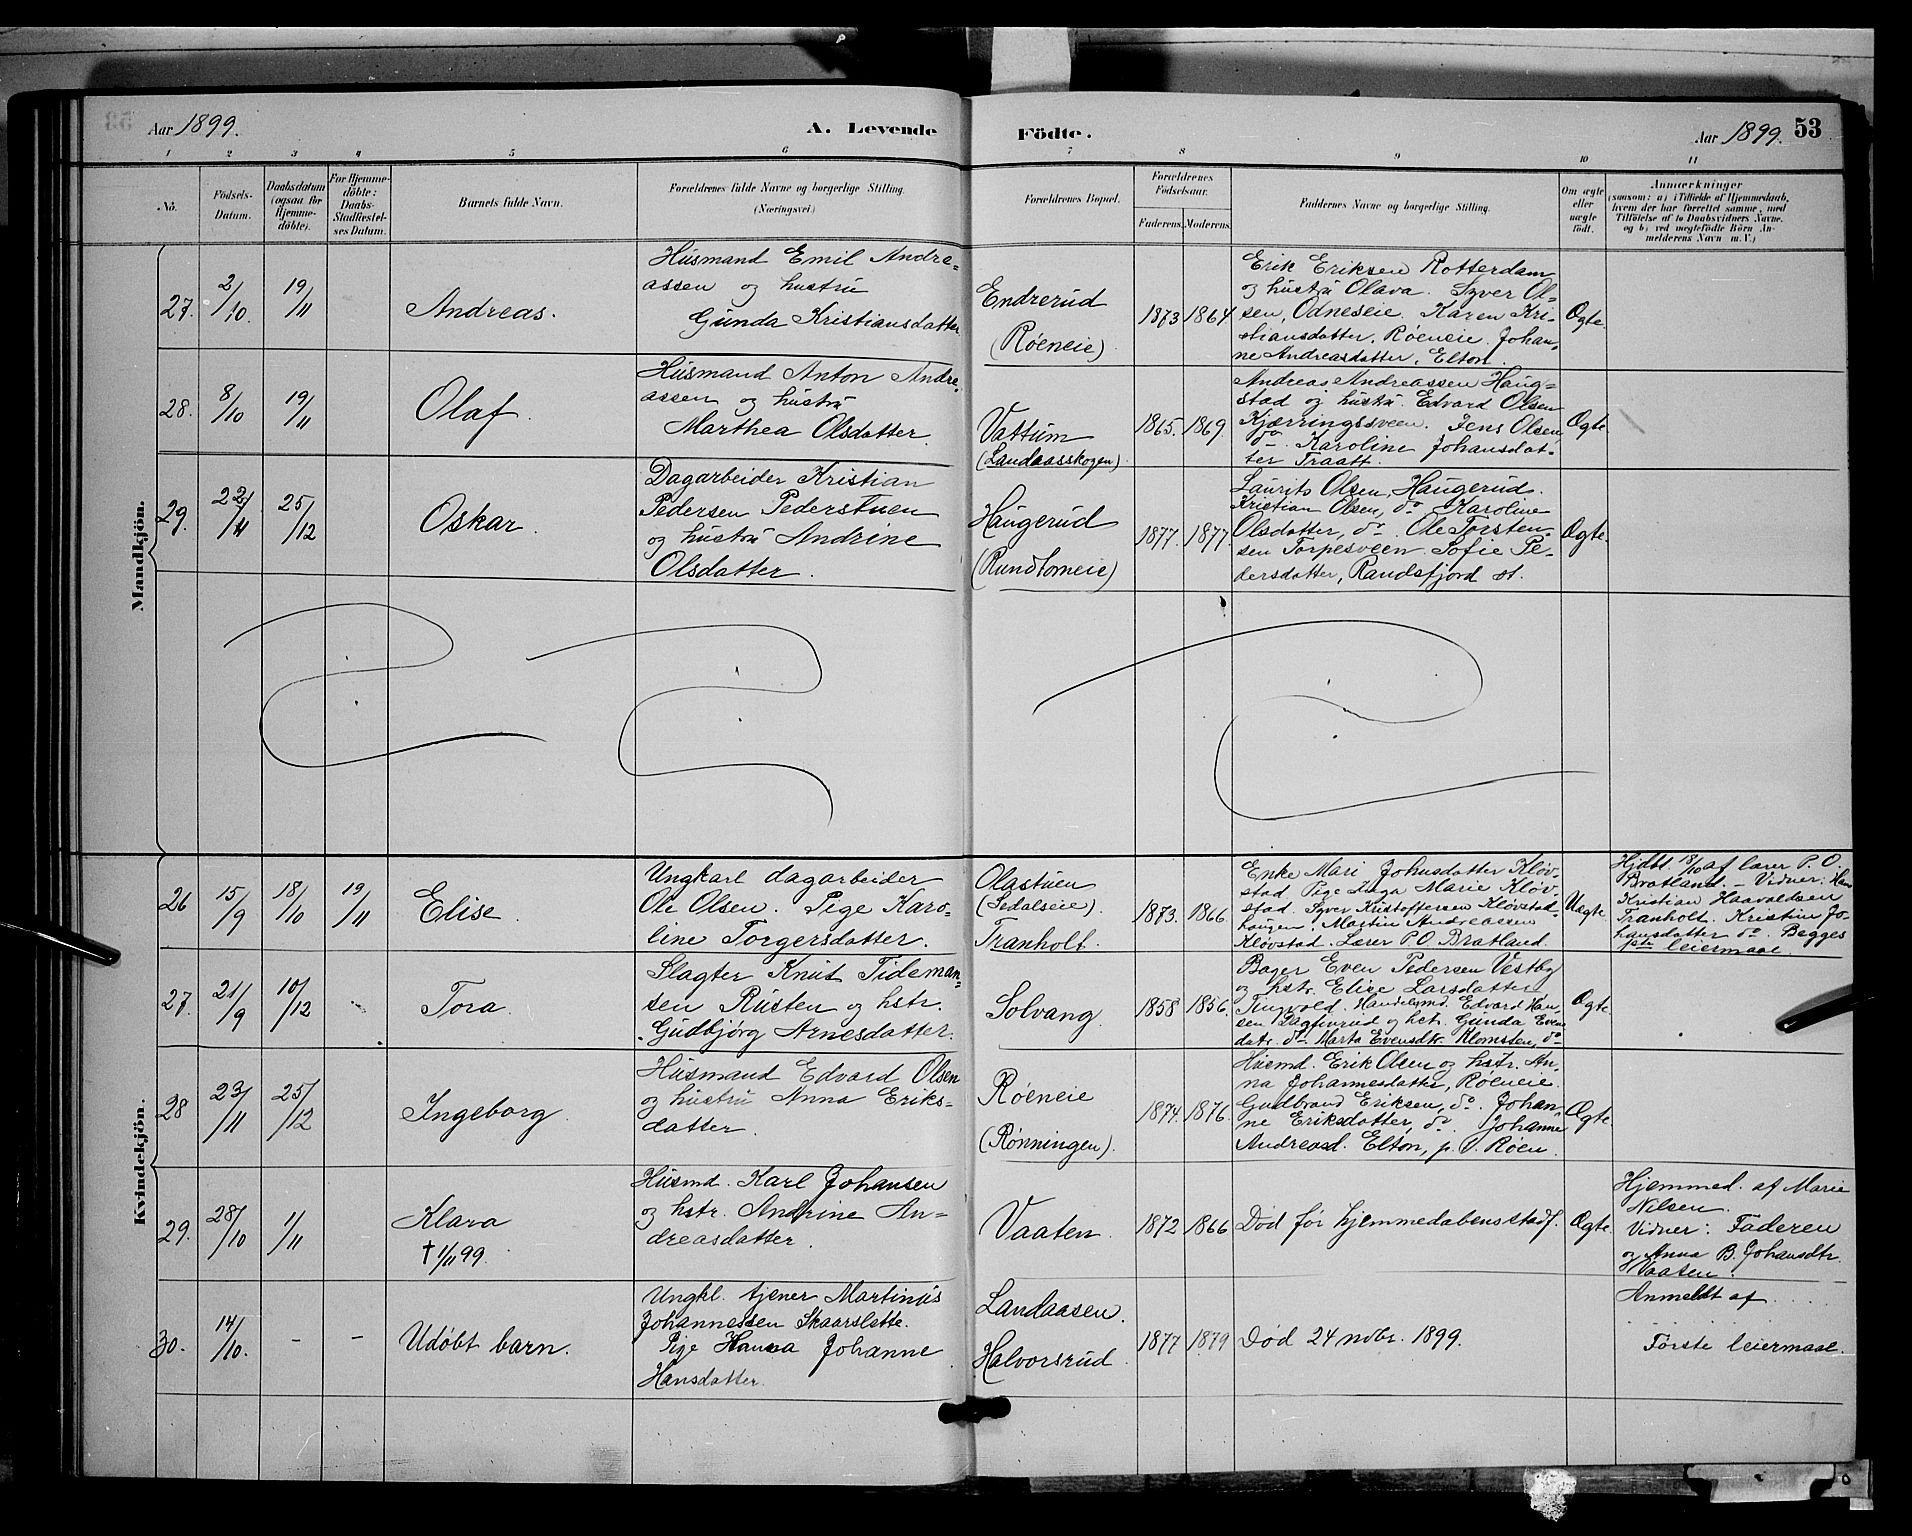 Aar 1899. A. Levende Födte. Aar 1899. 53
1 2 3 4 5 6 7 8 9 10 11
No.
Födsels-
Datum.
Daabsdatum
(ogsaa for
Hjemme-
döbte).
For Hjemme-
döbte:
Daabs-
Stadfæstel-
ses Datum.
Barnets fulde Navn.
Forældrenes fulde Navne og borgerlige Stilling.
(Næringsvei.)
Forældrenes Bopæl.
Forældrenes
Födselsaar.
Faderens. Moderens.
Faddernes Navne og borgerlige Stilling.
Om ægte
eller
uægte
födt.
Anmærkninger
(saasom: a) i Tilfælde af Hjemmedaab,
hvem der har forrettet samme, med
Tilföielse af to Daabsvidners Navne.
og b) ved uægtefödte Börn An-
melderens Navn m. V.)
Mandkjön.
27. 2/10. 19/11 Andreas.
Husmand Emil Andre-
assen og hustru
Gunda Kristiansdatter
Endrerud
(Røeneie)
1873 1864
Erik Eriksen Rotterdam
og hustru Olava. Syver Ol-
sen, Odneseie. Karen Kri-
stiansdatter, Røeneie. Johan-
ne Andreasdatter, Elton.
Ægte
28. 8/10 19/11 Olaf.
Husmand Anton Andre-
assen og hustru
Marthea Olsdatter.
Vattum
(Landaasskogen)
1865. 1869.
Andreas Andreassen Haug-
stad og hustru. Edvard Olsen
Kjærringsveen. Jens Olsen
do. Karoline Johansdat-
ter Traatt.
Ægte
29. 22/11 25/12 Oskar.
Dagarbeider Kristian
Pedersen Pederstuen
og hustru Andrine
Olsdatter.
Haugerud
(Rundtomeie)
1877. 1877.
Laurits Olsen, Haugerud.
Kristian Olsen, do. Karoline
Olsdatter, do. Ole Torsten-
sen Torpesveen. Sofie Pe-
dersdatter, Randsfjord st.
Ægte.
Kvindekjön.
26 15/9 18/10 19/11 Elise.
Ungkarl dagarbeider
Ole Olsen. Pige Karo-
line Torgersdatter.
Olastuen
(Sedalseie).
Tranholt.
1873. 1866.
Enke Mari Johnsdatter Kløv-
stad Pige Inga Marie Kløv-
stad. Syver Kristoffersen Kløvstad-
haugen. Martin Andreassen
Kløvstad. Lærer P.O. Bratland.
Uægte
Hjdbt 18/10 af lærer P. O.
Bratland. – Vidner: Hans
Kristian Haavaldsen
Tranholt. Kristin Jo-
hansdatter do. Begges
1ste leiermaal.
27. 21/9 10/12 Tora.
Slagter Knut Tideman-
sen Rusten og hstr.
Gudbjørg Arnesdatter.
Solvang.
1858 1856.
Bager Even Pedersen Vestby
og hstr. Elise Larsdatter
Tingvold. Handelsmd. Edvard Han-
sen og hstr. Gunda Evens
datr. do. Marta Evensdtr. Klomsten, do
Ægte.
28 23/11 25/12 Ingeborg.
Husmand Edvard Olsen
og hustru Anna Eriks-
datter.
Røeneie
(Rønningen).
1874. 1876.
Husmd. Erik Olsen og hstr. An-
na Johannesdatter, Røeneie.
Gudbrand Eriksen, do. Johan-
ne Eriksdatter, do. Johanne
Andreasd. Elton, p. t. Røen.
Ægte.
29. 28/10 1/11 Klara
† 1/11 99.
Husmd. Karl Johansen
og hstr. Andrine An-
dreasdatter.
Vaaten.
1872 1866
Død før hjemmedabens stadf.
Ægte.
Hjemmed. af Marie
Nilsen.
Vidner: Faderen
og Anna B. Johansdtr.
Vaaten.
30. 14/10. – – Udøbt barn.
Ungkl. tjener Martinus
Johannessen Skaarslette.
Pige Hanna Johanne
Hansdatter.
Landaasen.
Halvorsrud.
1877 1879
Død 24 novbr. 1899.
Anmeldt af
Første leiermaal.